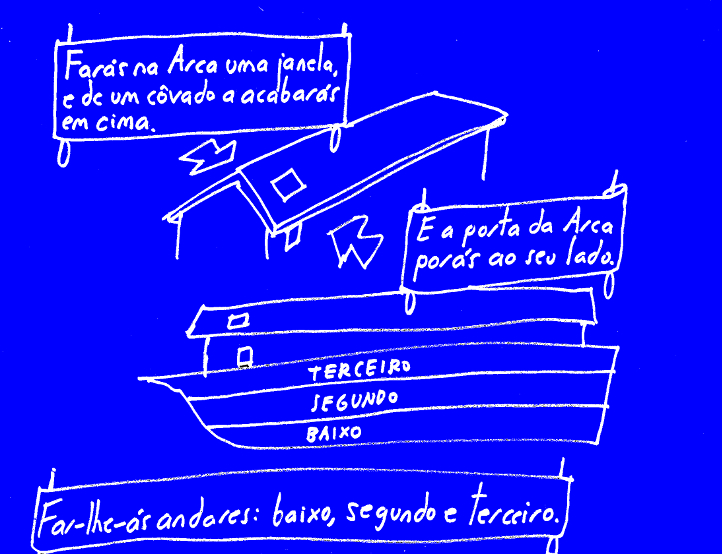 Farás na Arca uma janela,
e de um côvado a acabarás
em cima.
E a porta da Arca
porás ao seu lado.
TERCEIRO
SEGUNDO
BAIXO
Far-lhe-ás andares: baixo, segundo e terceiro.